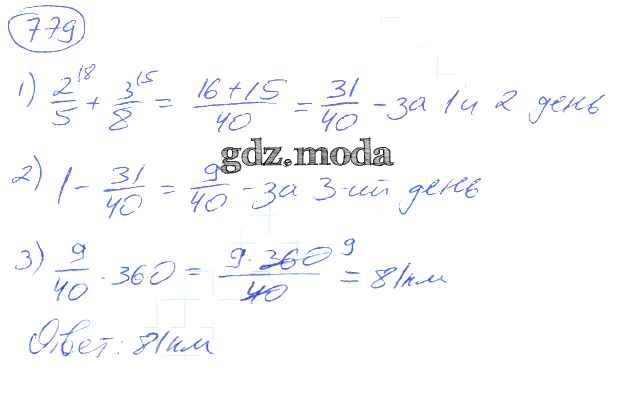 779
1) 2/5 + 3/8 = (16+15)/40 = 31/40 - за 1 и 2 день
gdz.moda
2) 1 - 31/40 = 9/40 - за 3-ий день
3) 9/40 · 360 = (9·360)/40 = 81км
Ответ: 81км